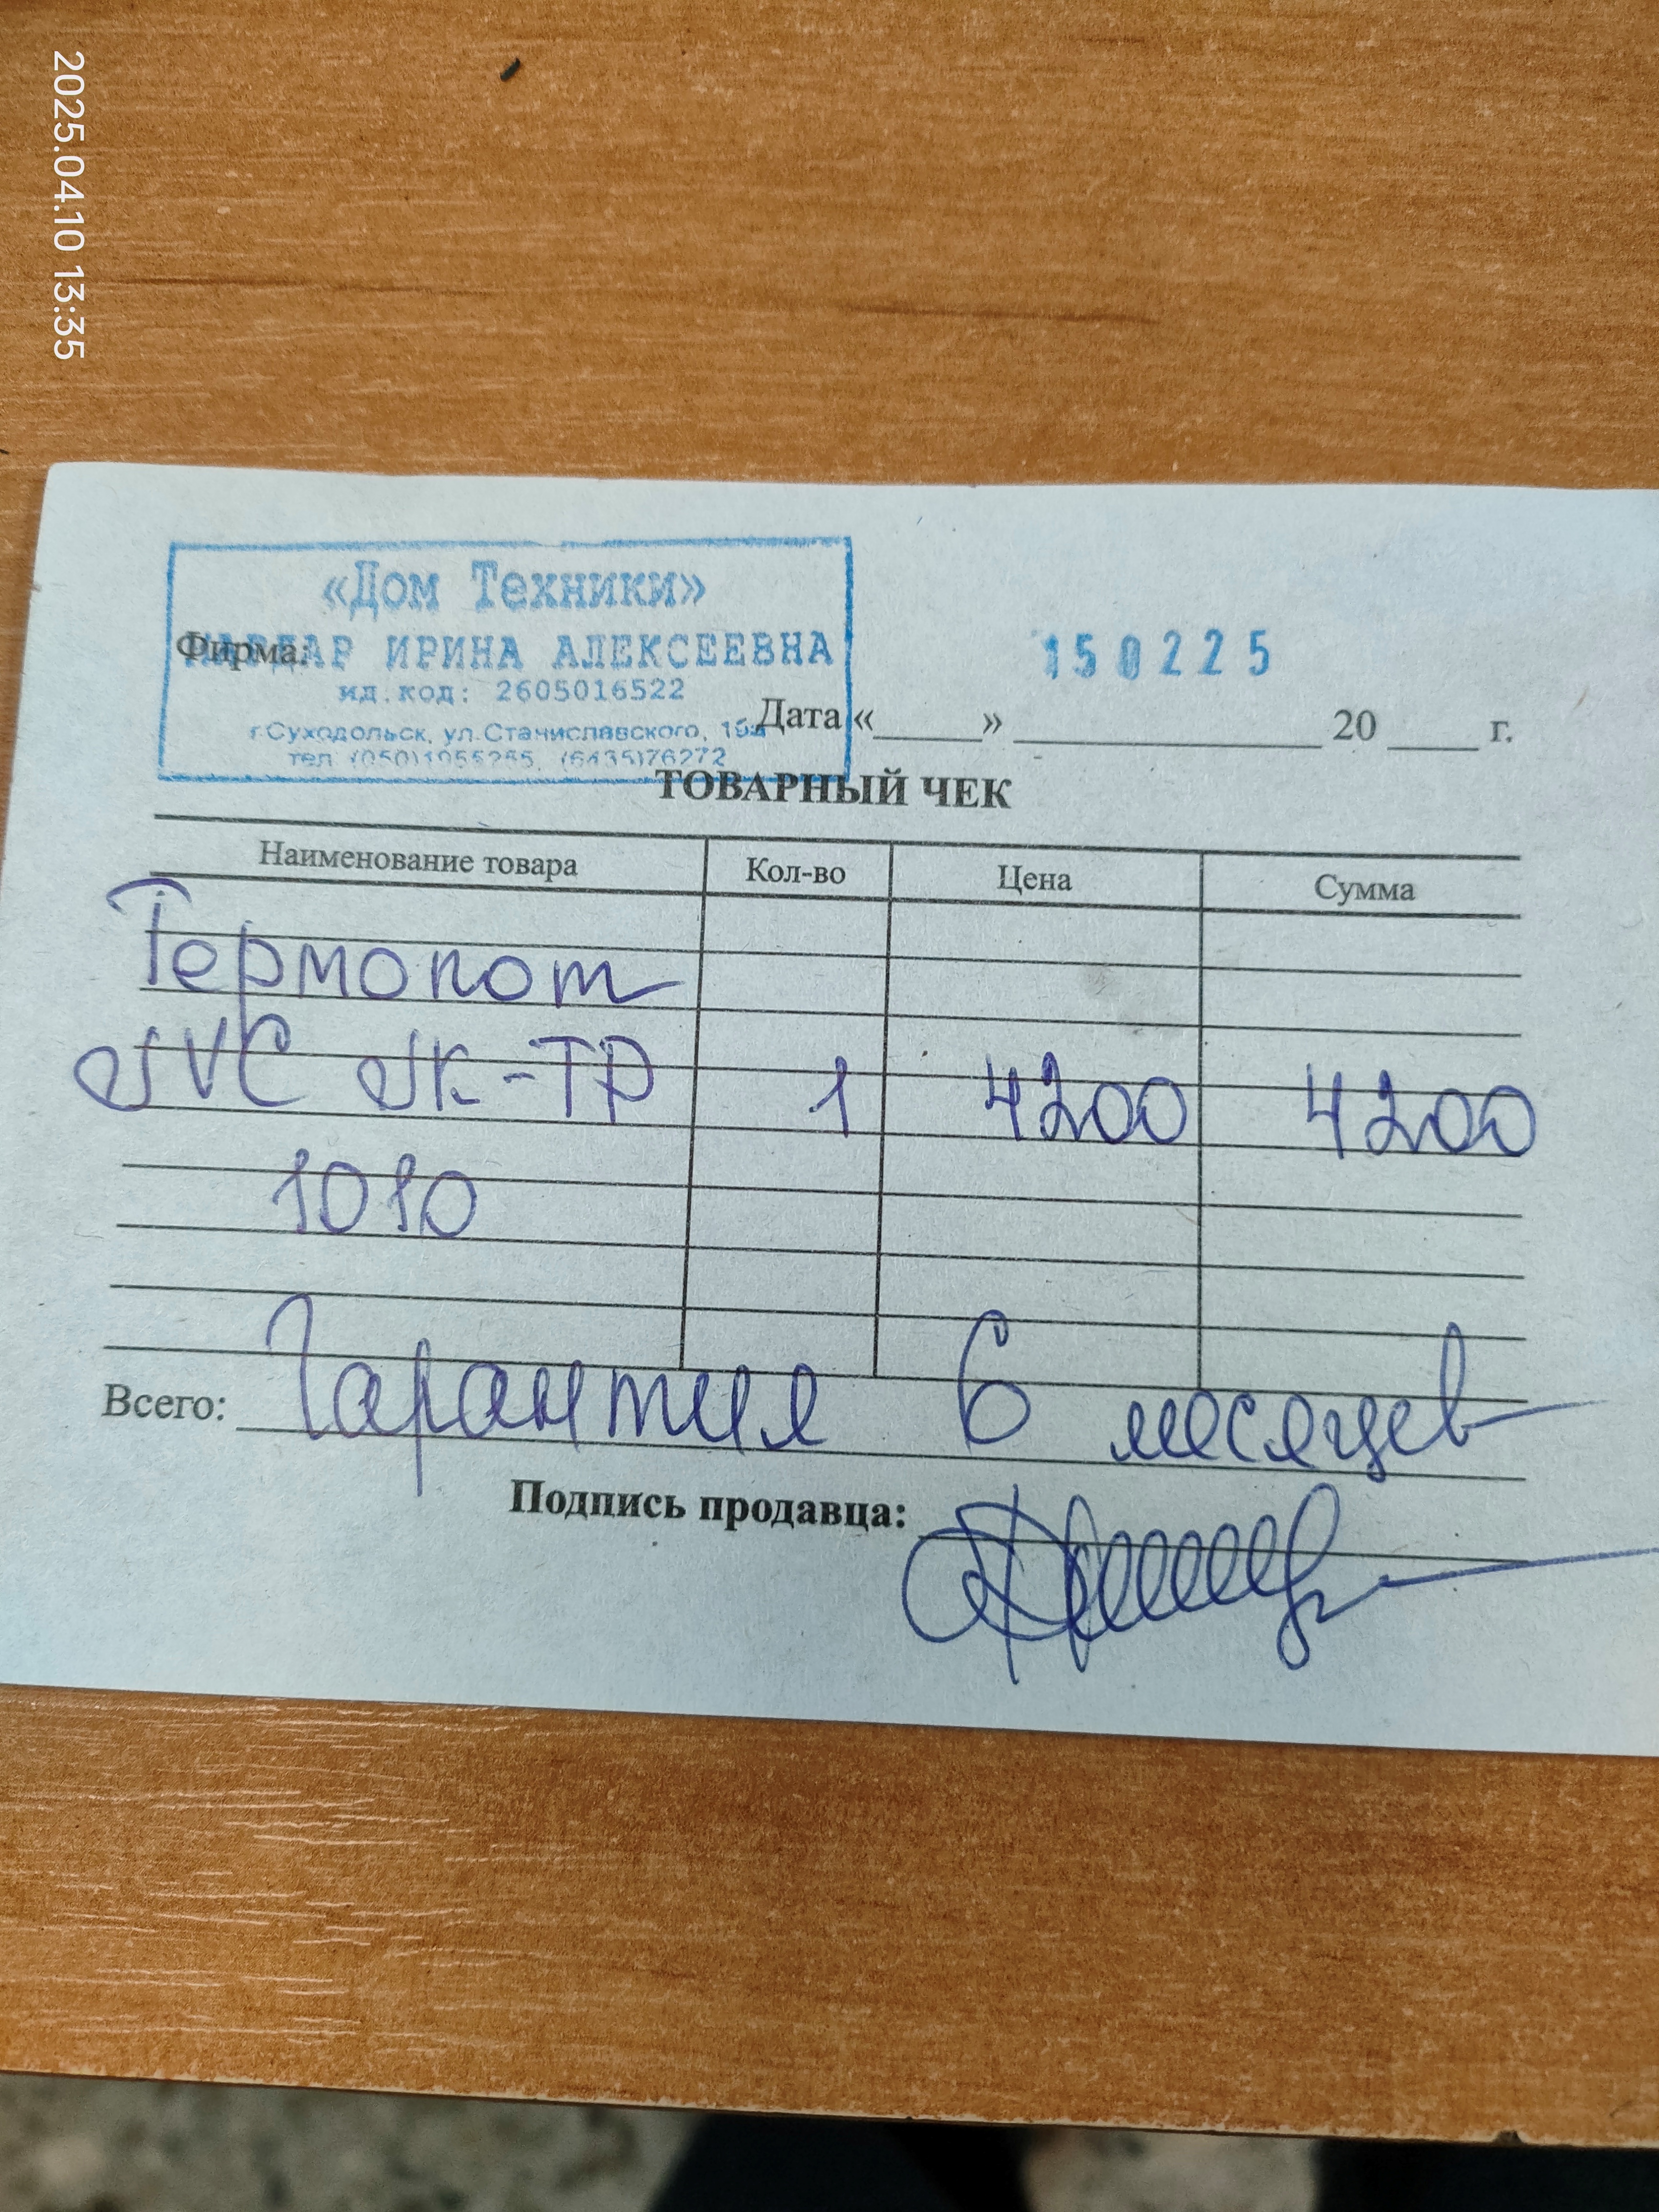 2025.04.10 13:35
«Дом Техники»
Фирма: ИРИНА АЛЕКСЕЕВНА
150225
ид.код: 2605016522
г.Суходольск, ул.Станиславского,
Дата «____» ____________ 20 ____ г.
тел. (6435)76272
ТОВАРНЫЙ ЧЕК
Наименование товара Кол-во Цена Сумма
Термопот
JVC JK-TP 1 4200 4200
1010
Всего: Гарантия 6 месяцев
Подпись продавца: